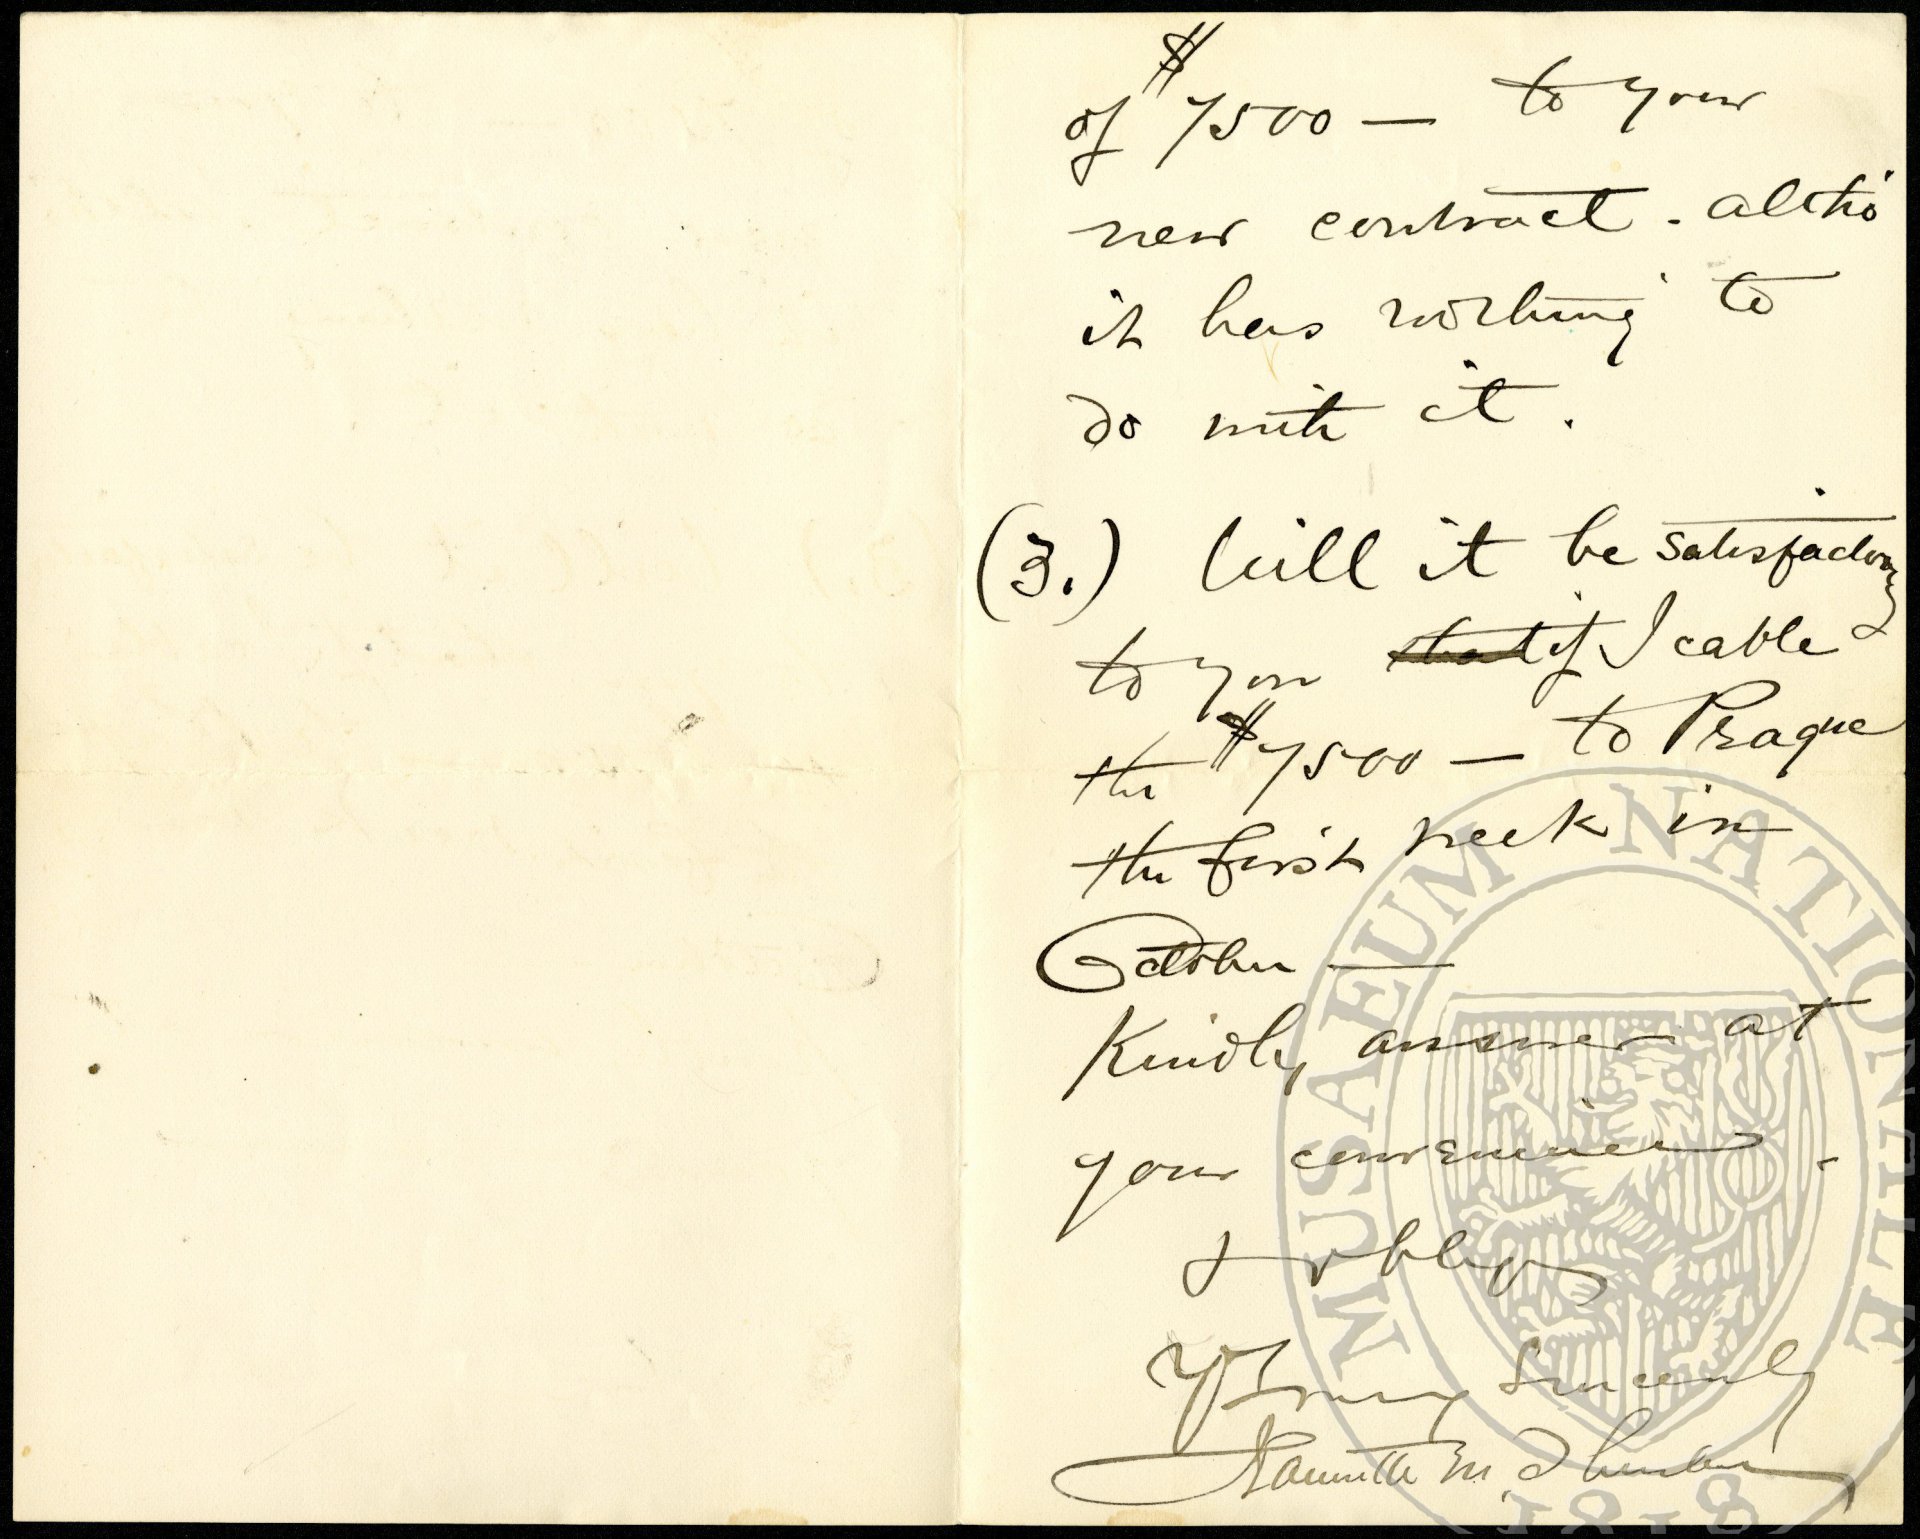 of $7500 — to your
new contract - altho'
it has nothing to
do with it.
(3.) Will it be satisfactory
to you that if I cable
the $7500 — to Prague
the first week in
October —
Kindly answer at
your convenience -
& oblige
Yours very Sincerely
Jeannette M. Thurber
MUSAEUM NATIONALE
1818